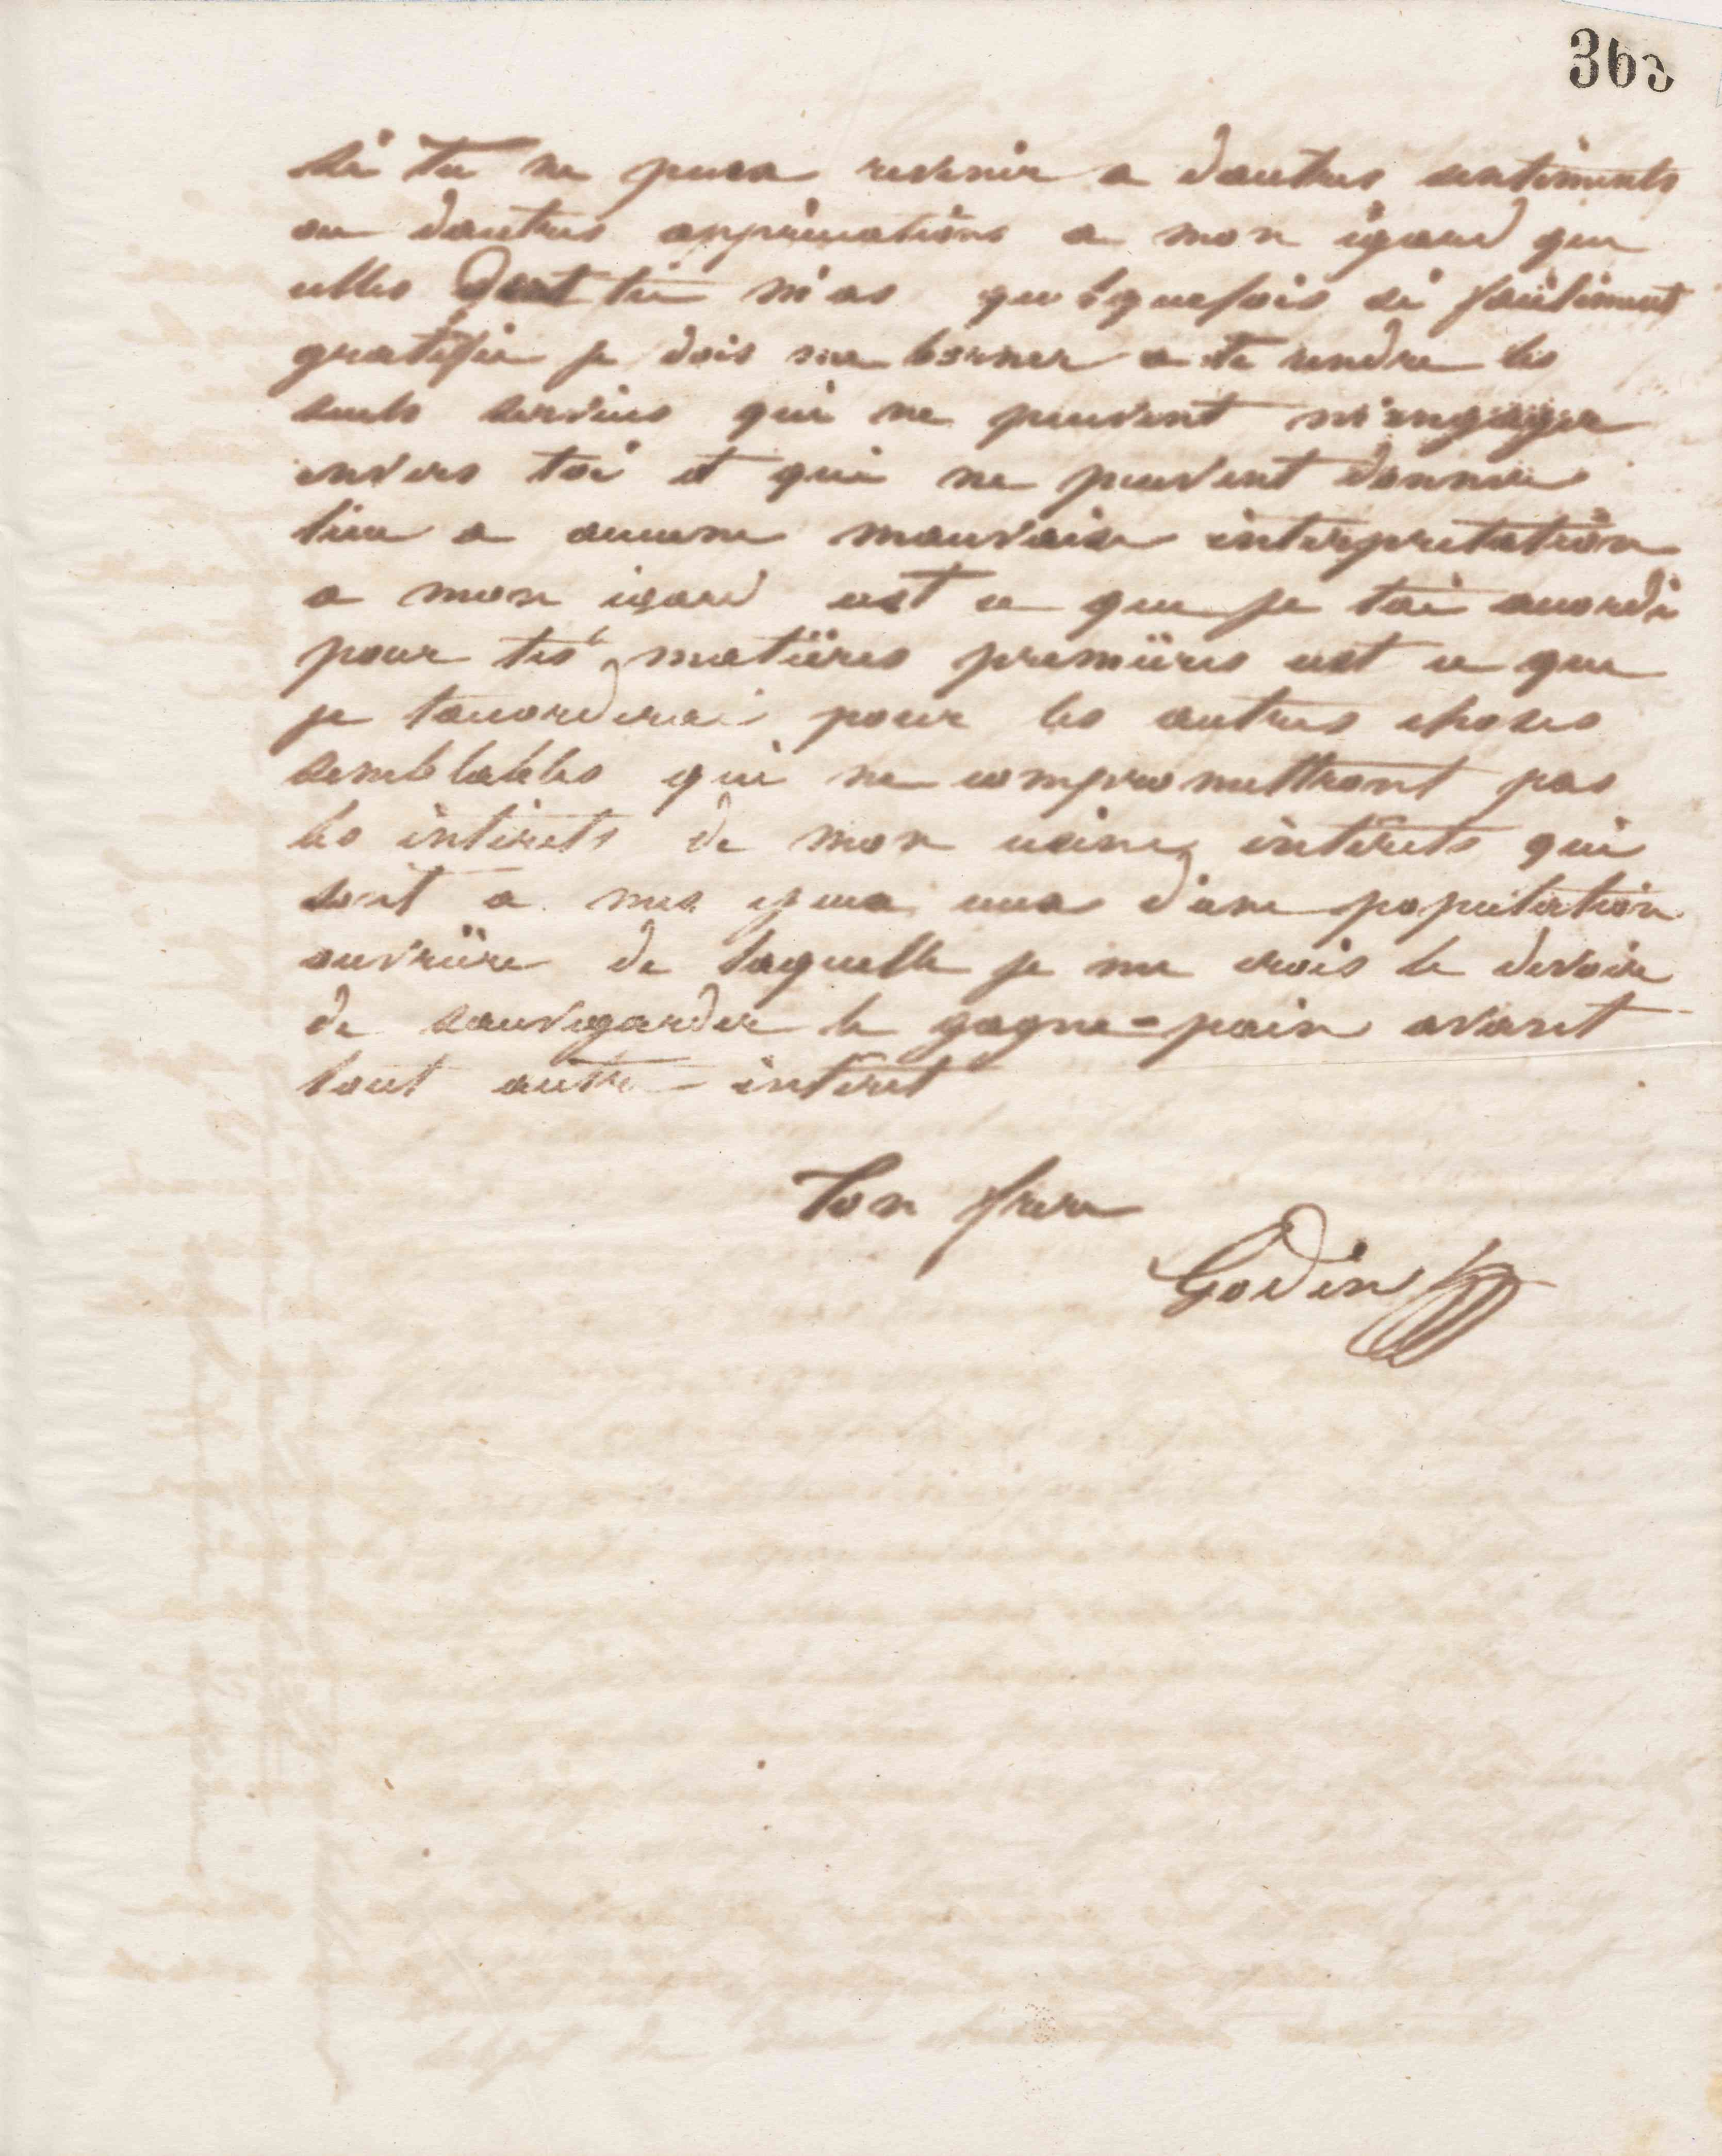 363
si tu ne peux revenir a dautres sentiments
ou dautres appréciations a mon égard que
celles dont tu m'as quelquefois si facilement
gratifié je dois me borner a te rendre les
seuls services qui ne peuvent m'engager
envers toi et qui ne peuvent donner
lieu a aucune mauvaise interprétation
a mon égard cest ce que je tai accordé
pour tes matières premières cest ce que
je taccorderai pour les autres choses
semblables qui ne compromettront pas
les intérets de mon usine, intérets qui
sont a mes yeux ceux d'une population
ouvrière de laquelle je me crois le devoir
de sauvegarder le gagne=pain avant
tout autre intéret
Ton frere
Godin